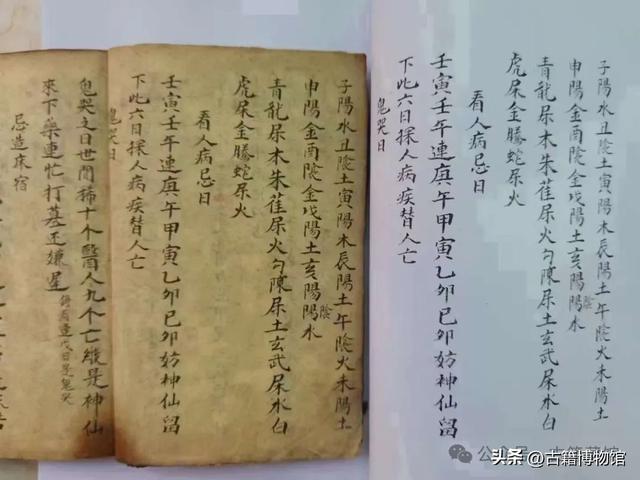 子陽水丑陰土寅陽木辰陽土午陰火未陽土
申陽金酉陰金戊陽土亥陽陽水
陰
青龍属木朱雀属火勾陳属土玄武属水白
虎属金騰蛇属火
看人病忌日
壬寅壬午連庚午甲寅乙卯巳卯妨神仙留
下此六日探人病疾替人亡
鬼哭日
子陽水丑陰土寅陽木辰陽土午陰火未陽土
申陽金酉陰金戊陽土亥陽陽水
陰
青龍属木朱雀属火勾陳属土玄武属水白
虎属金騰蛇属火
看人病忌日
壬寅壬午連庚午甲寅乙卯巳卯妨神仙留
下此六日探人病疾替人亡
鬼哭日
鬼哭之日世間稀十个醫人九个亡縱是神仙
來下藥連忙打墓嫌遲
日是鬼哭
忌造床宿
公众号
头条 @古籍博物馆